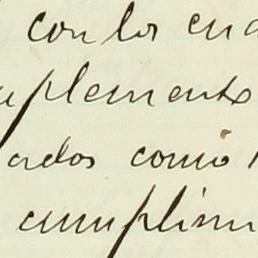 con los cua
plemento
ados como
cumplim